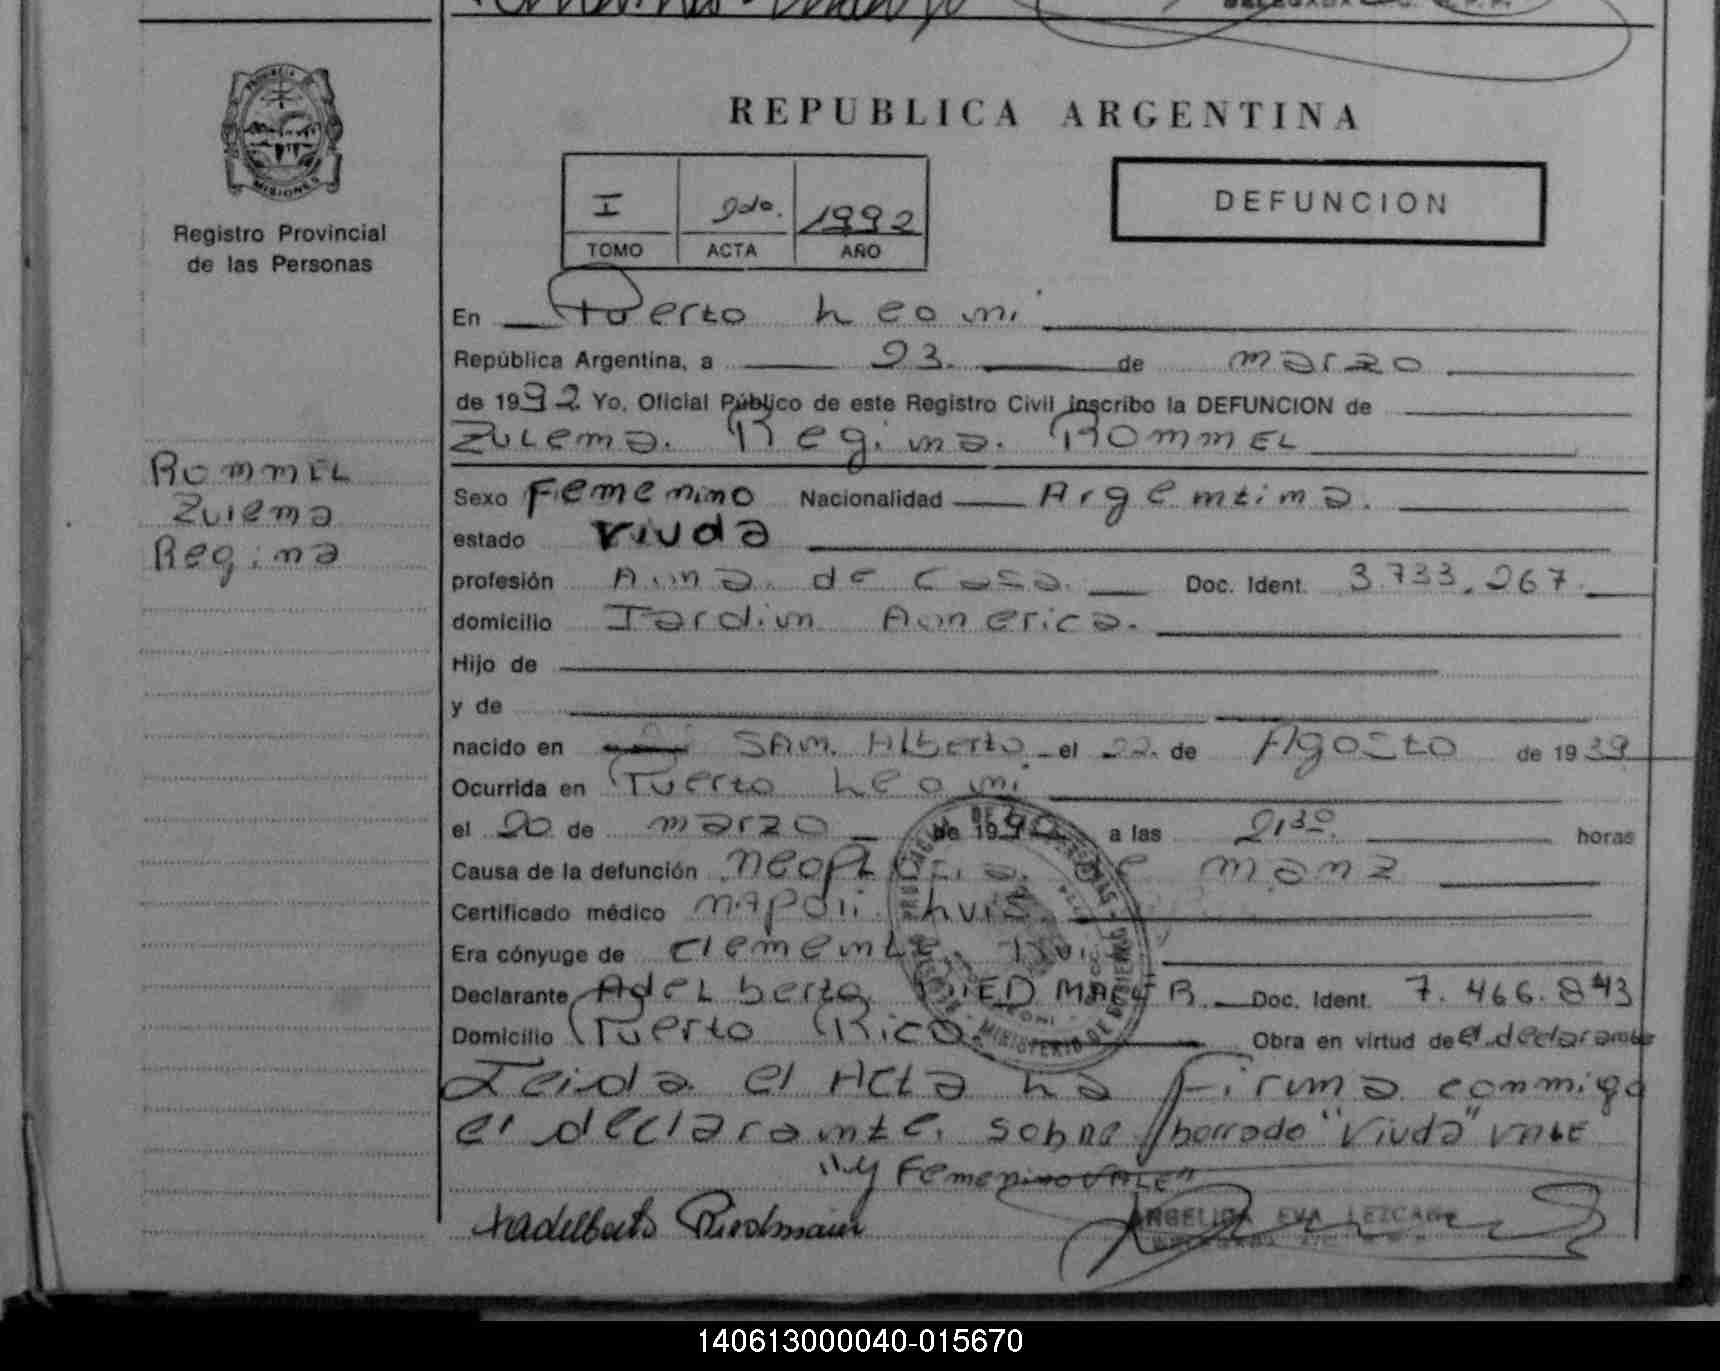 REPUBLICA ARGENTINA
PROVINCIA
MISIONES
Registro Provincial
de las Personas
DEFUNCION
I 2do. 1992
TOMO ACTA AÑO
En Puerto Leoni
República Argentina, a 23. de marzo
de 1992 Yo, Oficial Público de este Registro Civil inscribo la DEFUNCION de
Zulema. Regina. ROMMEL
ROMMEL
Zulema
Regina
Sexo Femenino Nacionalidad Argentina.
estado Viuda
profesión Ama. de Casa. Doc. Ident. 3.733.267.
domicilio Jardin America.
Hijo de
y de
nacido en San. Alberto el 22. de Agosto de 1939
Ocurrida en Puerto Leoni
el 20 de marzo de 19 a las 21,30 horas
Causa de la defunción neoplasia.
Certificado médico napoli Luis
Era cónyuge de Clemente
Declarante Adelberto RIEDMAIER. Doc. Ident. 7.466.843
Domicilio Puerto Rico Obra en virtud de el declarante
Leida el Acta ha firma conmigo
el declarante. sobre borrado "Viuda" VALE
"y Femenino VALE"
Adelberto Riedmaier
ANGELICA EVA LEZCANO
DELEGADA
140613000040-015670